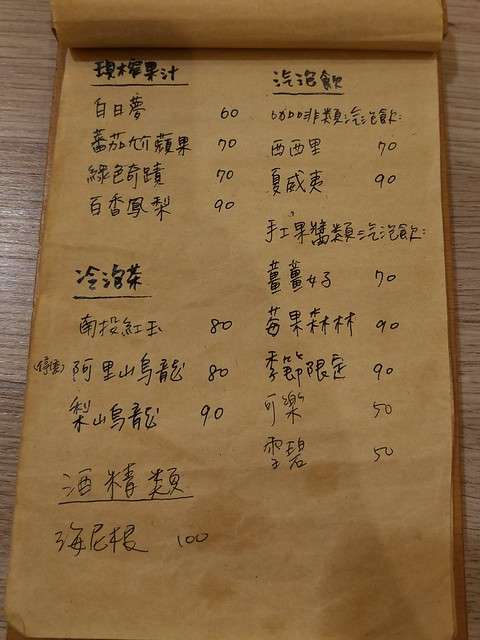 現榨果汁
白日夢 60
蕃茄尬蘋果 70
綠色奇蹟 70
百香鳳梨 90
冷泡茶
南投紅玉 80
阿里山烏龍 80
梨山烏龍 90
酒精類
海尼根 100
汽泡飲
咖啡類汽泡飲:
西西里 70
夏威夷 90
手工果醬類汽泡飲:
薑薑好 70
莓果森林 90
季節限定 90
可樂 50
雪碧 50